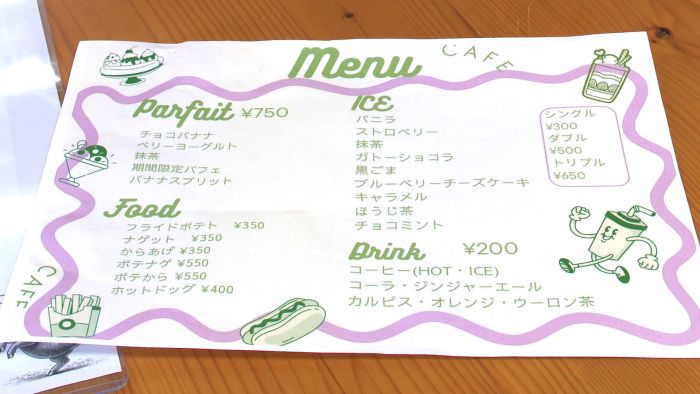 Menu
CAFE
Parfait ¥750
チョコバナナ
ベリーヨーグルト
抹茶
期間限定パフェ
バナナスプリット
Food
フライドポテト ¥350
ナゲット ¥350
からあげ ¥350
ポテナゲ ¥550
ポテから ¥550
ホットドッグ ¥400
CAFE
ICE
バニラ
ストロベリー
抹茶
ガトーショコラ
黒ごま
ブルーベリーチーズケーキ
キャラメル
ほうじ茶
チョコミント
シングル
¥300
ダブル
¥500
トリプル
¥650
Drink ¥200
コーヒー(HOT・ICE)
コーラ・ジンジャーエール
カルピス・オレンジ・ウーロン茶